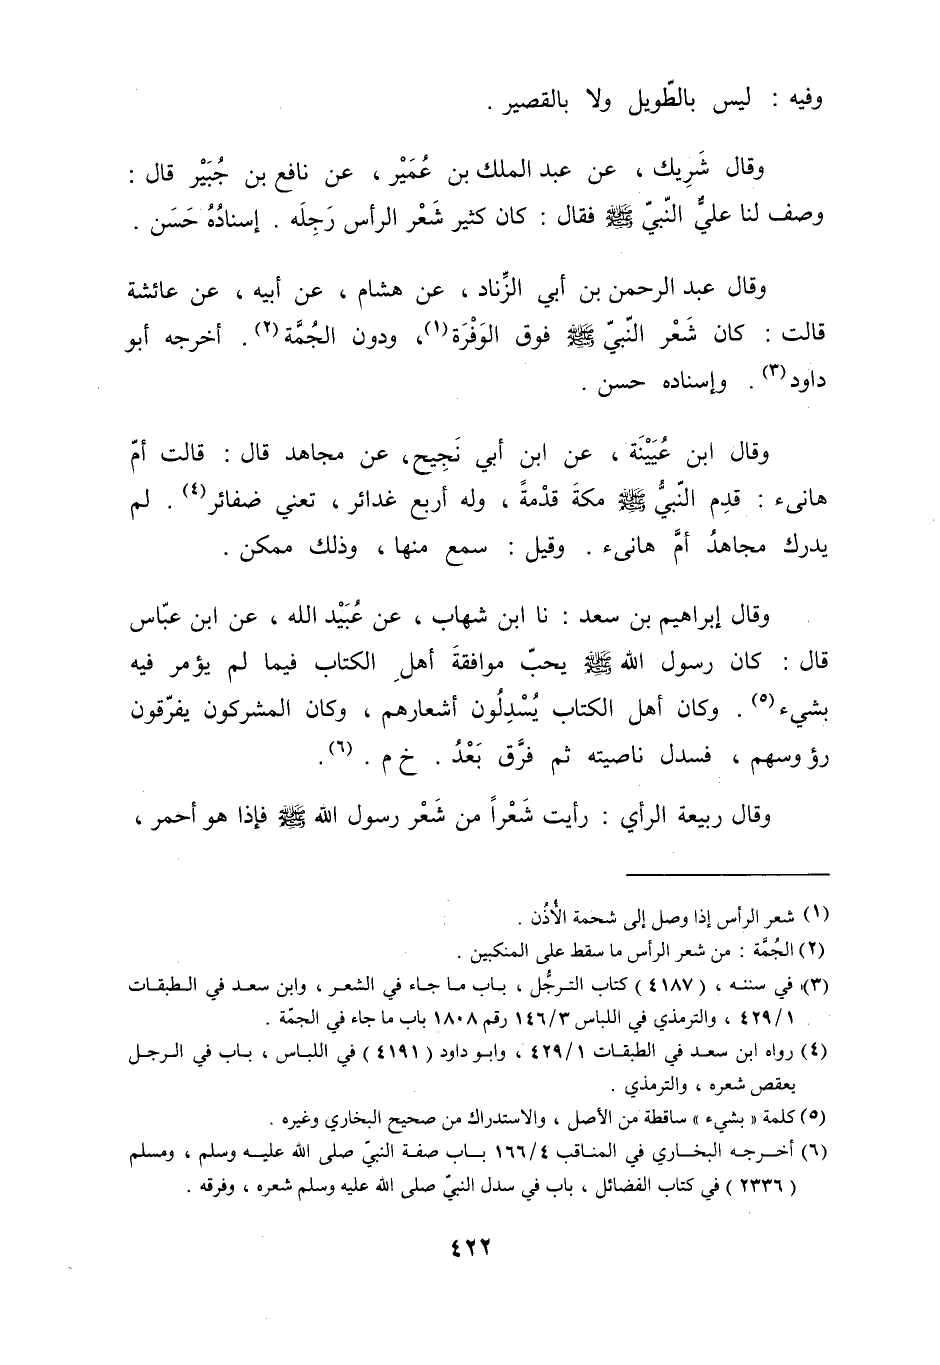 وفيه : ليس بالطّويل ولا بالقصير .
وقال شَرِيك ، عن عبد الملك بن عُمَيْر ، عن نافع بن جُبَيْر قال :
وصف لنا عليٌّ النّبيّ ﷺ فقال : كان كثير شَعْر الرأس رَجِلَه . إسنادُهُ حَسَن .
وقال عبد الرحمن بن أبي الزِّناد ، عن هشام ، عن أبيه ، عن عائشة
قالت : كان شَعْر النّبيّ ﷺ فوق الوَفْرَة(١)، ودون الجُمَّة(٢) . أخرجه أبو
داود(٣) . وإسناده حسن .
وقال ابن عُيَيْنَة ، عن ابن أبي نَجِيح، عن مجاهد قال : قالت أمّ
هانىء : قدِم النّبيُّ ﷺ مكةَ قدْمةً ، وله أربع غدائر ، تعني ضفائر(٤) . لم
يدرك مجاهدُ أمَّ هانىء . وقيل : سمع منها ، وذلك ممكن .
وقال إبراهيم بن سعد : نا ابن شهاب ، عن عُبَيْد الله ، عن ابن عبّاس
قال : كان رسول الله ﷺ يحبّ موافقةَ أهلِ الكتاب فيما لم يؤمر فيه
بشيء(٥) . وكان أهل الكتاب يُسْدِلُون أشعارهم ، وكان المشركون يفرّقون
رؤوسهم ، فسدل ناصيته ثم فرَّق بَعْدُ . خ م . (٦).
وقال ربيعة الرأي : رأيت شَعْراً من شَعْر رسول الله ﷺ فإذا هو أحمر ،
(١) شعر الرأس إذا وصل إلى شحمة الأُذُن .
(٢) الجُمَّة : من شعر الرأس ما سقط على المنكبين .
(٣) في سننه ، ( ٤١٨٧ ) كتاب الترجُّل ، باب ما جاء في الشعر ، وابن سعد في الطبقات
٤٢٩/١ ، والترمذي في اللباس ١٤٦/٣ رقم ١٨٠٨ باب ما جاء في الجمّة .
(٤) رواه ابن سعد في الطبقات ٤٢٩/١ ، وابو داود ( ٤١٩١ ) في اللباس ، باب في الرجل
يعقص شعره ، والترمذي .
(٥) كلمة « بشيء » ساقطة من الأصل ، والاستدراك من صحيح البخاري وغيره .
(٦) أخرجه البخاري في المناقب ١٦٦/٤ باب صفة النبيّ صلى الله عليه وسلم ، ومسلم
( ٢٣٣٦ ) في كتاب الفضائل ، باب في سدل النبيّ صلى الله عليه وسلم شعره ، وفرقه .
٤٢٢